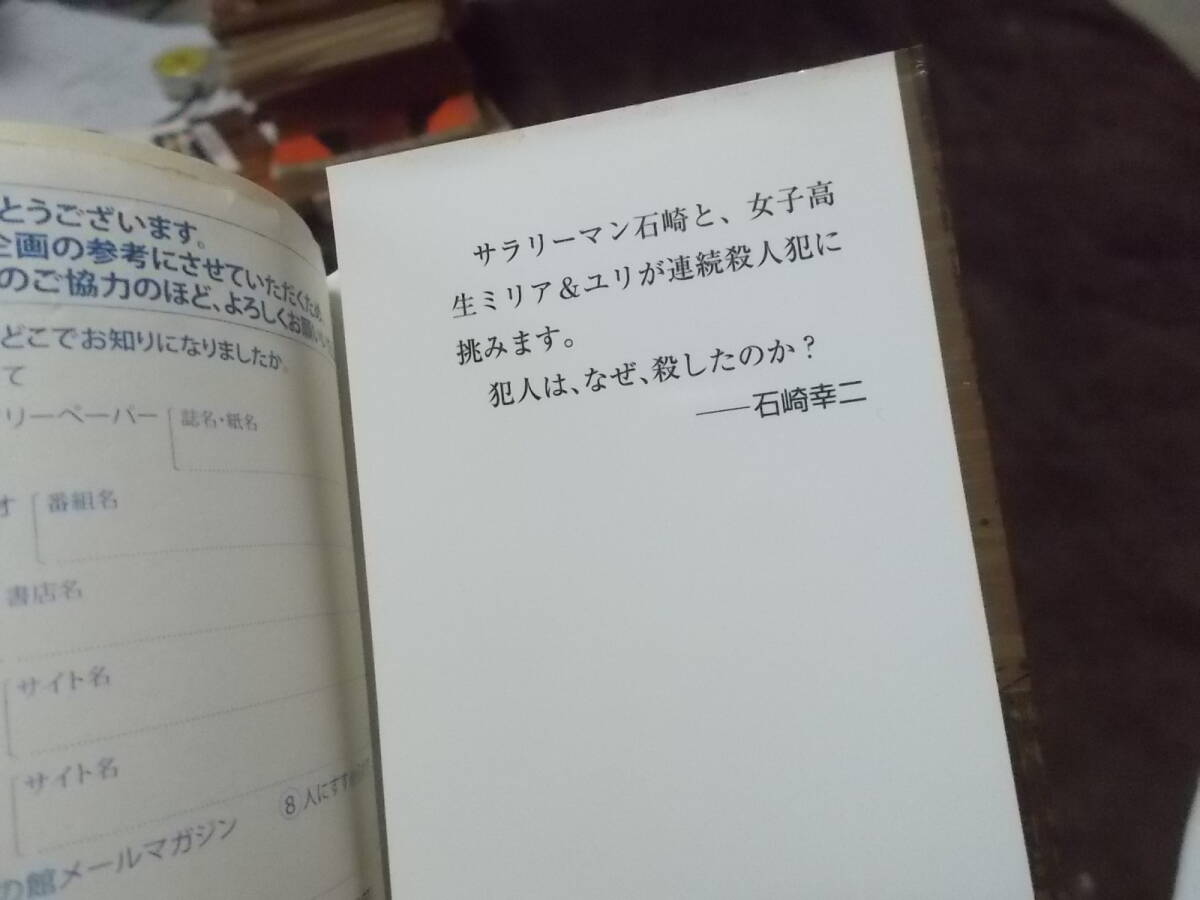 とうございます。
企画の参考にさせていただくため、
のご協力のほど、よろしくお願いし
どこでお知りになりましたか。
て
リーペーパー
誌名・紙名
オ
番組名
書店名
サイト名
サイト名
⑧人にすす
の館メールマガジン
サラリーマン石崎と、女子高
生ミリア&ユリが連続殺人犯に
挑みます。
犯人は、なぜ、殺したのか?
——石崎幸二